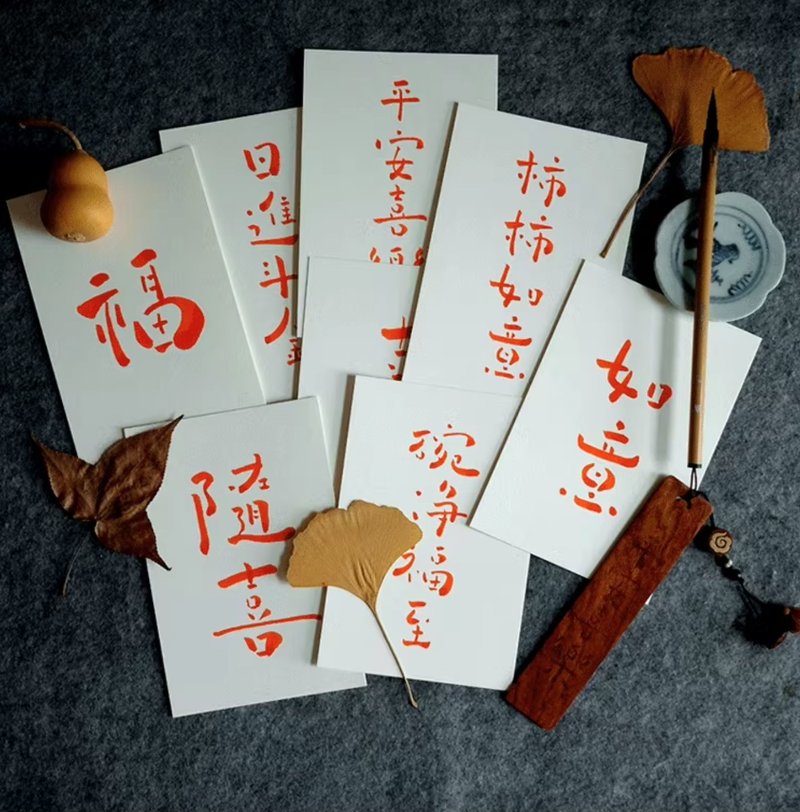 福
日進斗金
平安喜樂
柿柿如意
如意
隨喜
碗净福至